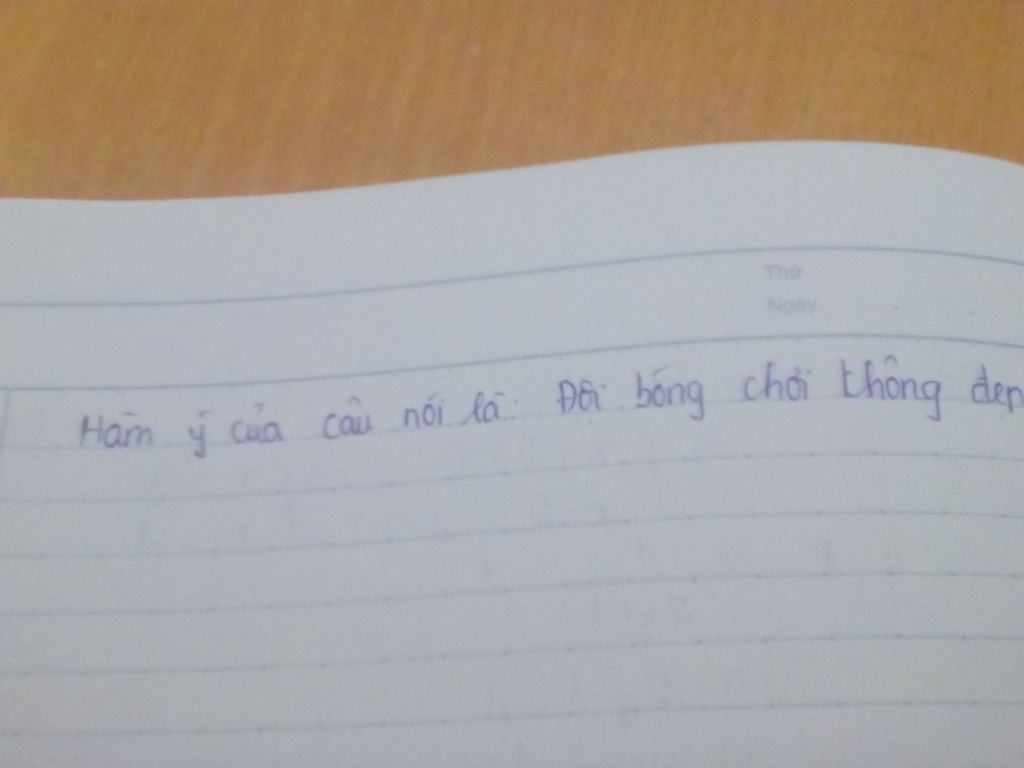 Thứ
Ngày
Hàm ý của câu nói là: Đội bóng chơi không đẹp